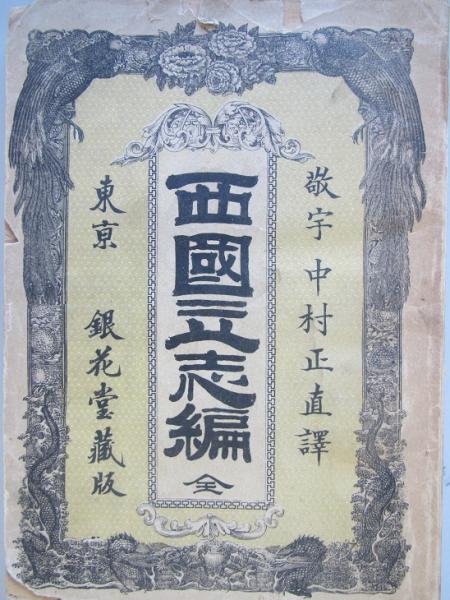 敬宇 中村正直譯
西國立志編 全
東京 銀花堂藏版